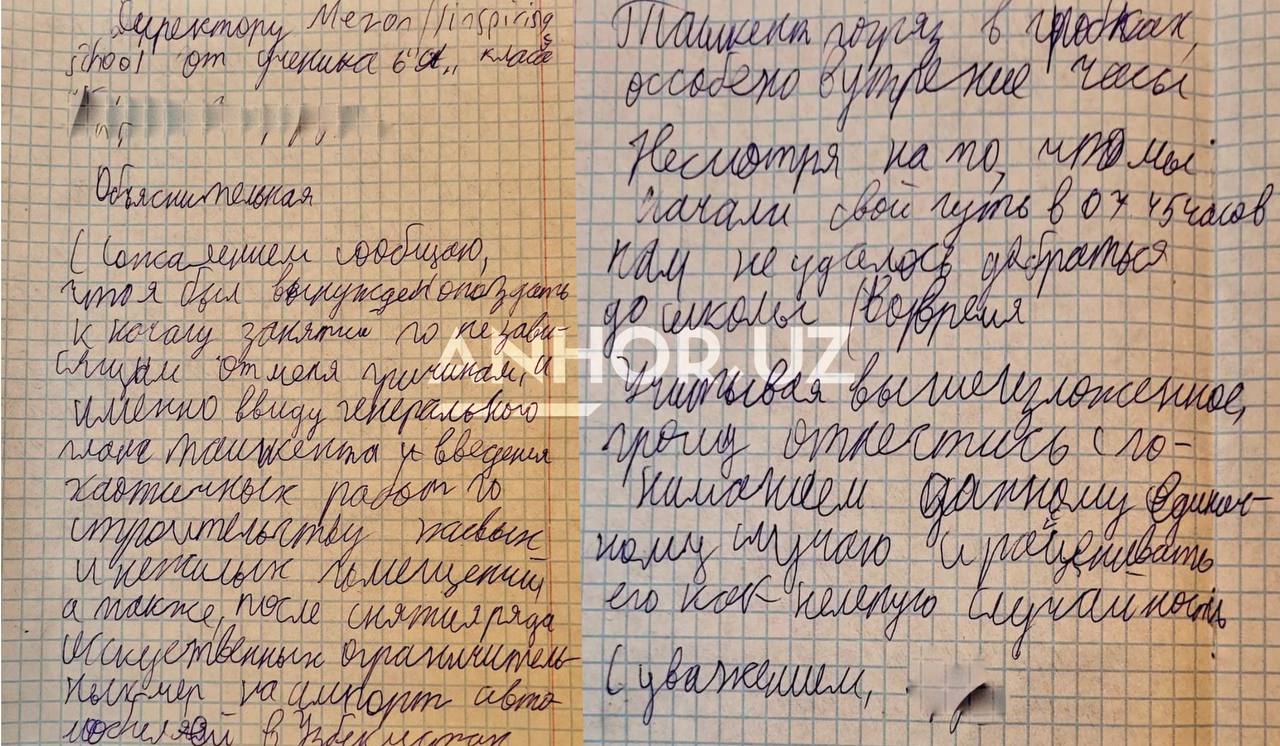 Директору Meron //inspiring
school от ученика 6 "d,, класса
Объяснительная
С сожалением сообщаю,
что я был вынужден опаздать
к началу занятия по незави-
сящим от меня причинам, и
именно ввиду генерального
плана Ташкента и введения
хаотичных работ по
строительству жилых
и нежилых помещений
а также, после снятия ряда
искуственных ограничитель-
ных мер на импорт авто-
мобилей в Узбекистан
Ташкент погряз в пробках,
особено в утрение часы
Несмотря на то, что мы
начали свой путь в 07 45 часов
нам не удалось добраться
до школы вовремя
Учитывая вышеизложенное,
прошу отнестись с по-
ниманием данному единич-
ному случаю и расценивать
его как нелепую случайность
С уважением,
ANHOR.UZ